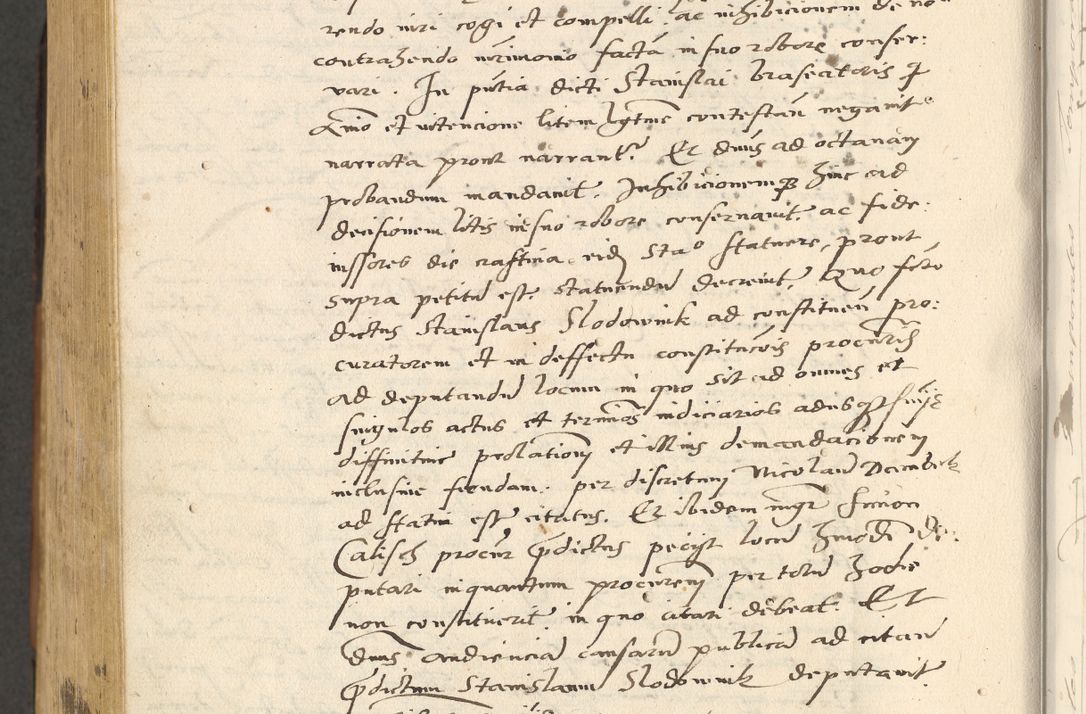 rendo iuri cogi et compelli. ac inhibicionem de no
contrahendo mrimonio factā in suo robore conser:
vari. In pntia dicti Stanislai braseatoris
Qui et intencione litem lgtme contestan negavit
narrata prout narrantr. Et dnus ad octavam
probandum mandavit. Inhibicionemqz hinc ad
decisionem litis in suo robore conservavit. ac fide:
iussores die crastina eidē Stao statuere, prout
supra petitū est, statuendū decrevit. Quo facto
dictus Stanislaus Slodownik ad constituen pro:
curatorem et in deffectu constitucōis procuris
ad deputandū locum in quo sit ad omnes et
singulos actus et terminos iudiciarios adusqz snīe
diffinitive prolationē et illius demandacionem
inclusive fiendam. per discretum Nicolaū Dambek
ad statim est citatus. Et ibidem mgr Simon
Calisch procur pdictus peciit locū hmodi de:
putari inquantum procurem per totū hodie
non constituerit. in quo citari debeat. Et
dnus audienciā causarū publicā ad citan
pdictum Stanislaum Slodownik deputavit